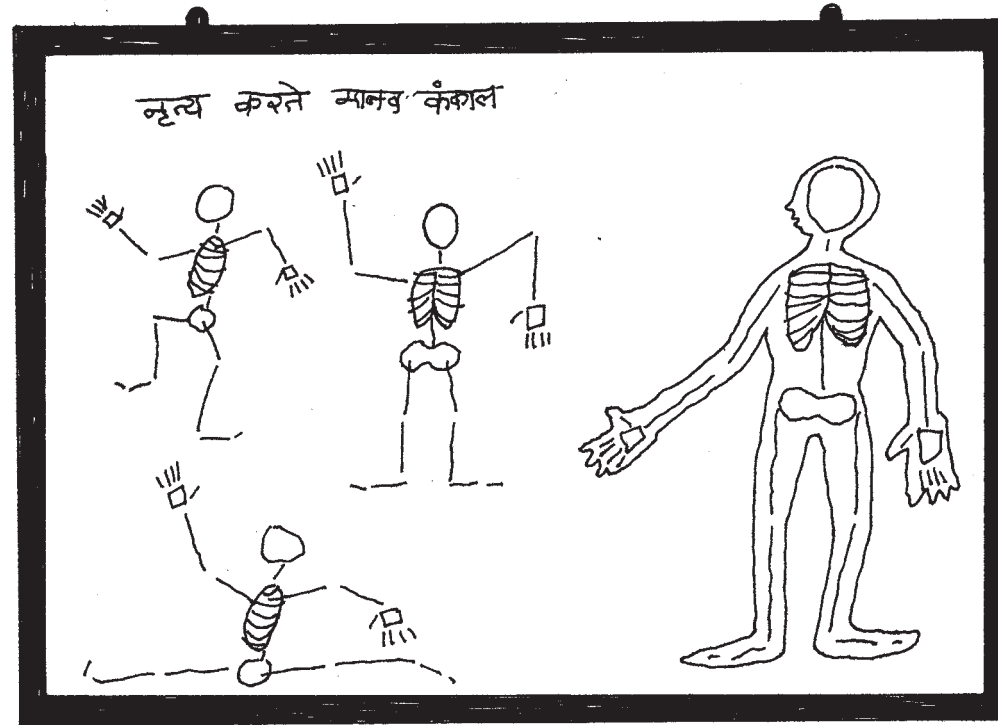 नृत्य करते मानव कंकाल